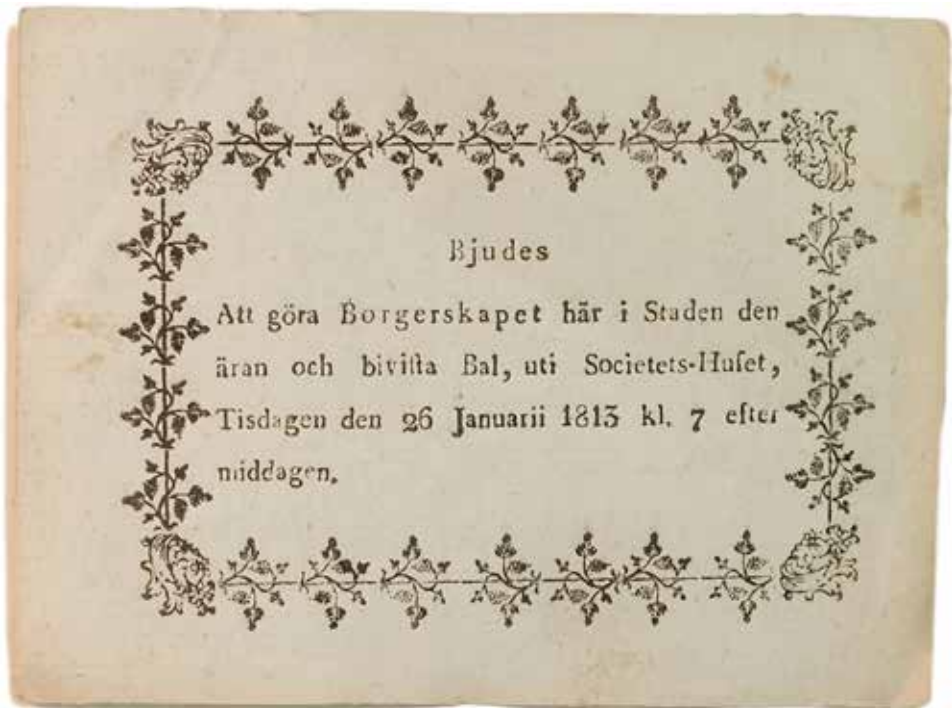 Bjudes
Att göra Borgerskapet här i Staden den
äran och biviſta Bal, uti Societets-Huſet,
Tisdagen den 26 Januarii 1813 kl. 7 efter
middagen.